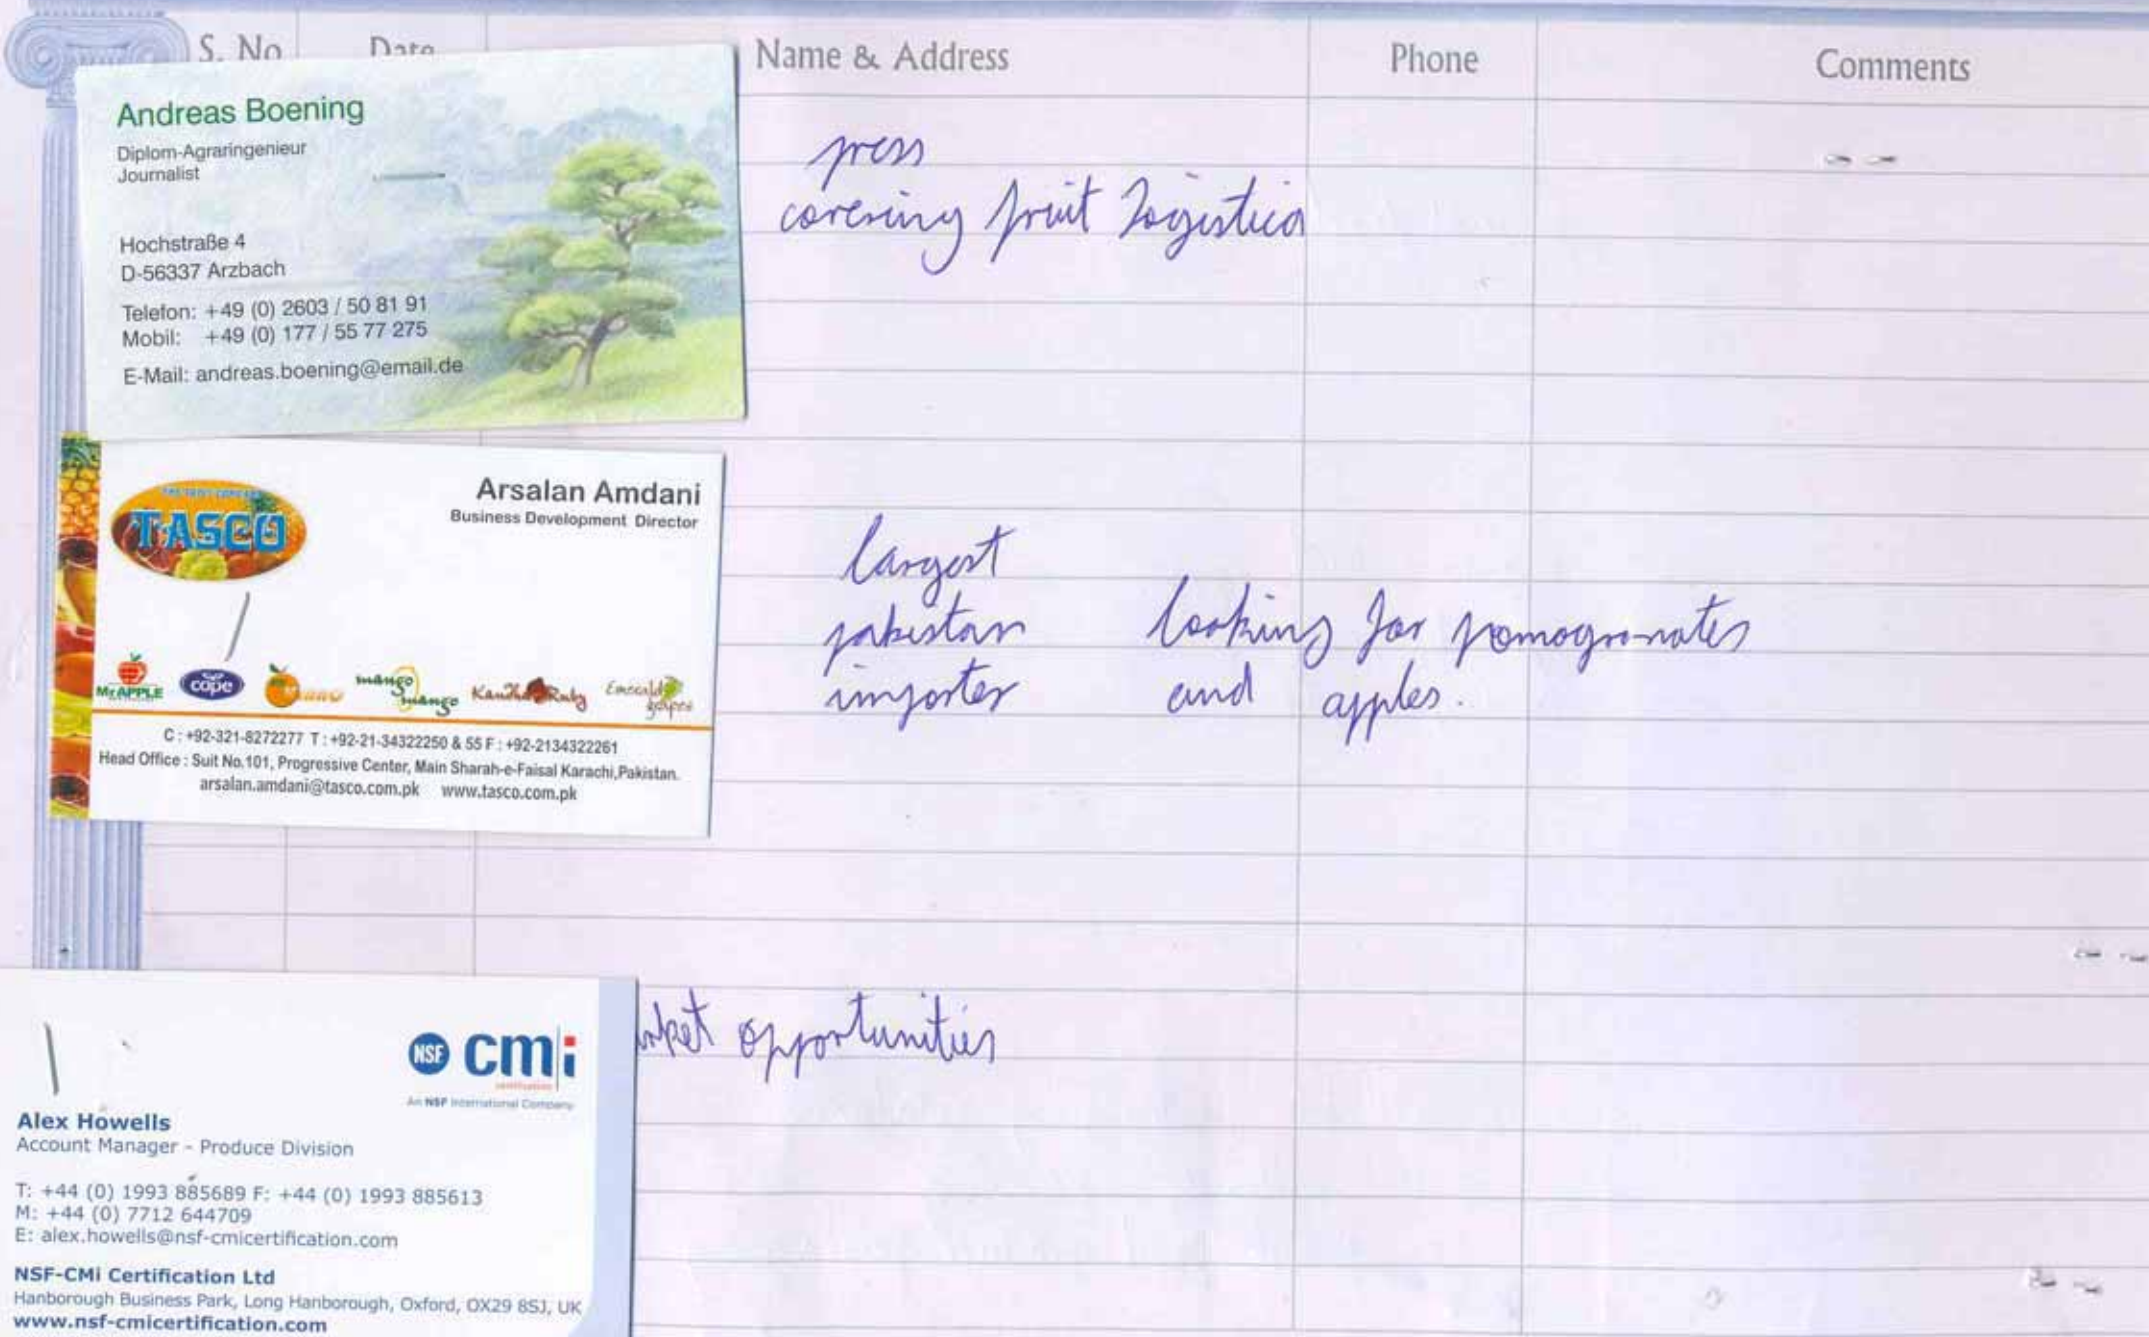 S. No Date Name & Address Phone Comments
Andreas Boening
Diplom-Agraringenieur
Journalist
Hochstraße 4
D-56337 Arzbach
Telefon: +49 (0) 2603 / 50 81 91
Mobil: +49 (0) 177 / 55 77 275
E-Mail: andreas.boening@email.de
press
covering fruit Logistica
TASCO
Arsalan Amdani
Business Development Director
Mr.APPLE cape mango mango Emerald grapes
C : +92-321-8272277 T : +92-21-34322250 & 55 F : +92-2134322261
Head Office : Suit No.101, Progressive Center, Main Sharah-e-Faisal Karachi,Pakistan.
arsalan.amdani@tasco.com.pk www.tasco.com.pk
largest
pakistan looking for pomogranates
importer and apples.
opportunities
NSF cmi
certification
An NSF International Company
Alex Howells
Account Manager - Produce Division
T: +44 (0) 1993 885689 F: +44 (0) 1993 885613
M: +44 (0) 7712 644709
E: alex.howells@nsf-cmicertification.com
NSF-CMi Certification Ltd
Hanborough Business Park, Long Hanborough, Oxford, OX29 8SJ, UK
www.nsf-cmicertification.com